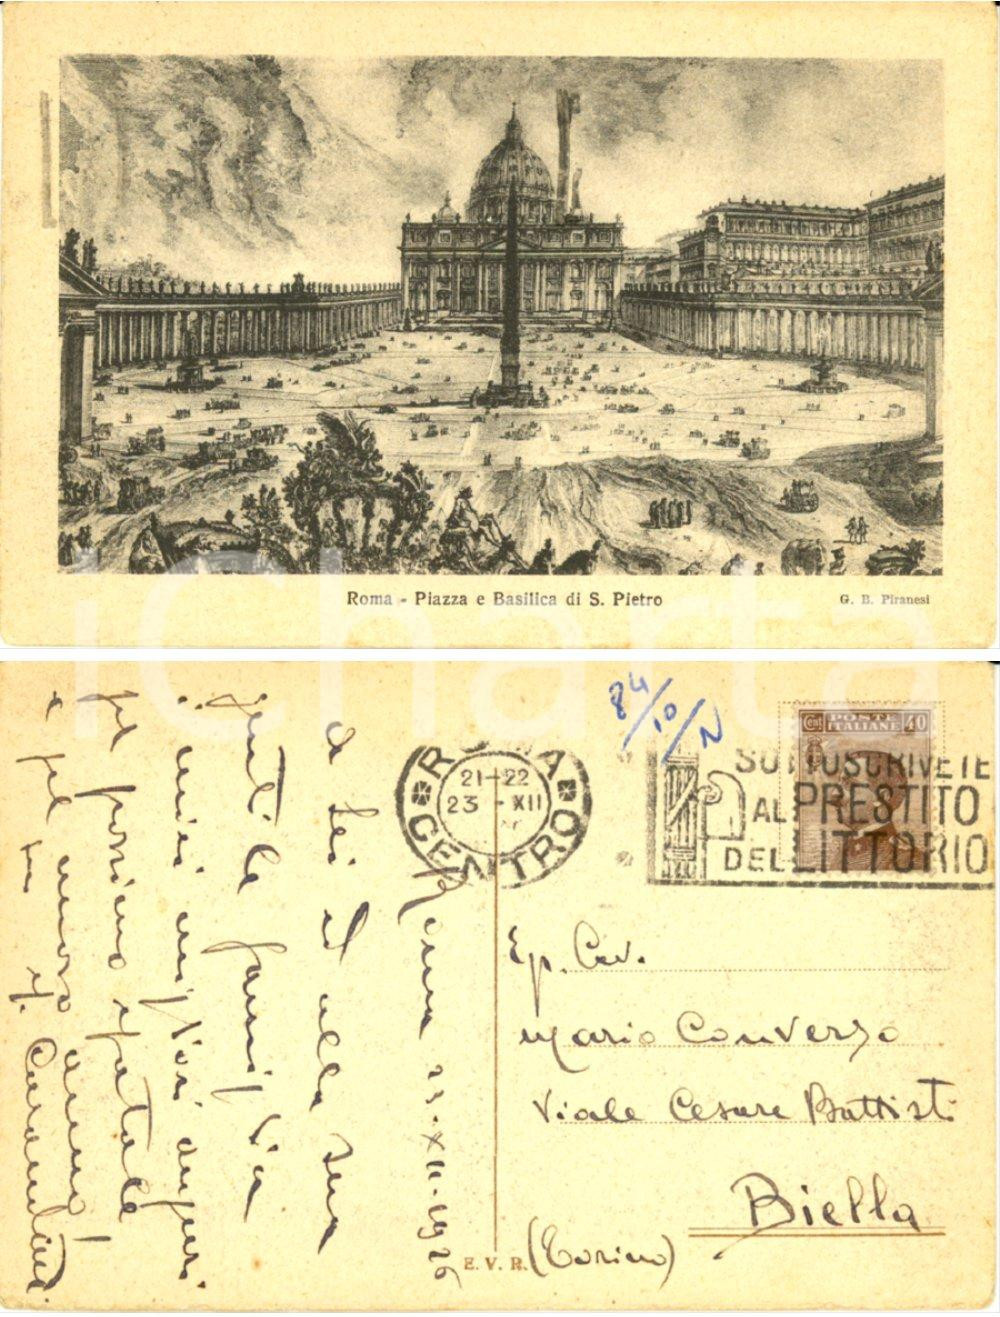 Roma - Piazza e Basilica di S. Pietro
G. B. Piranesi
iCharta
84/10/N
ROMA
CENTRO
21-22
23 - XII
Cent POSTE ITALIANE 40
SOTTOSCRIVETE
AL PRESTITO
DEL LITTORIO
Roma 23.XII.1926
a Lei ed alla sua
gentile famiglia
i miei migliori auguri
pel prossimo Natale
e pel nuovo anno!
Eg. Cav.
Mario Converso
Viale Cesare Battisti
Biella
(Torino)
E. V. R.